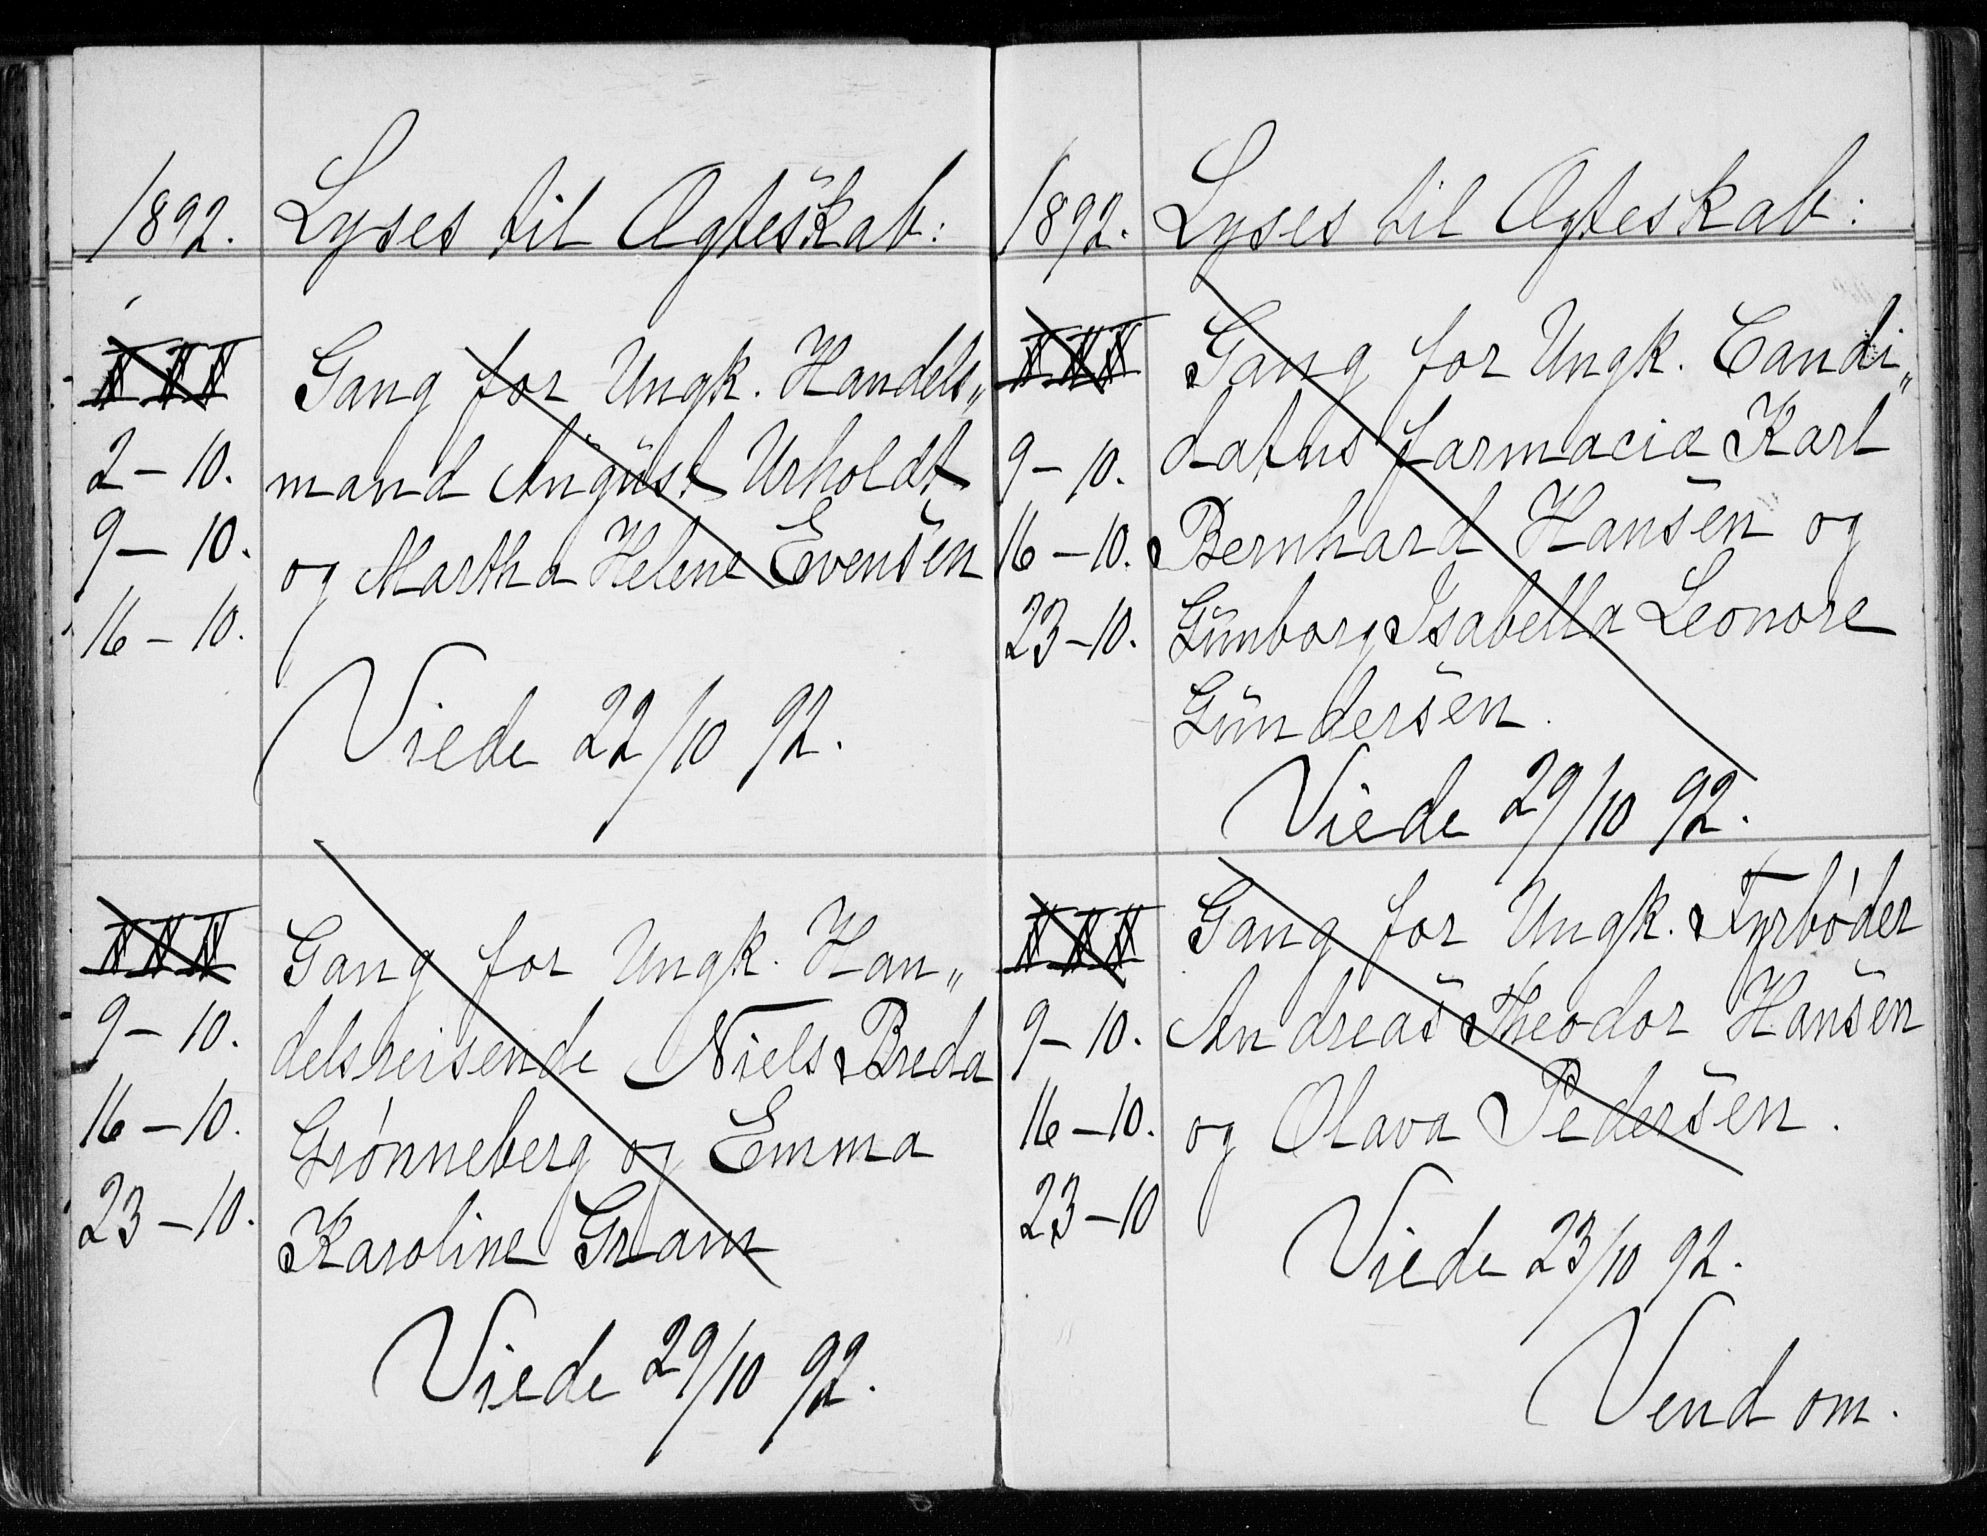 1892. Lyses til Ægteskab:
III Gang for Ungk. Handels„
2-10. mand August Urholdt
9-10. og Martha Helene Evensen
16-10.
Viede 22/10 92.
III Gang for Ungk. Han„
9-10. delsreisende Niels Breda
16-10. Grønneberg og Emma
23-10. Karoline Gram
Viede 29/10 92.
1892. Lyses til Ægteskab:
III Gang for Ungk. Candi„
9-10. datus farmacia Karl
16-10. Bernhard Hansen og
23-10. Gunborg Isabella Leonore
Gundersen.
Viede 29/10 92.
III Gang for Ungk. Fyrbøder
9-10. Andreas Theodor Hansen
16-10. og Olava Pedersen.
23-10
Viede 23/10 92.
Vend om.